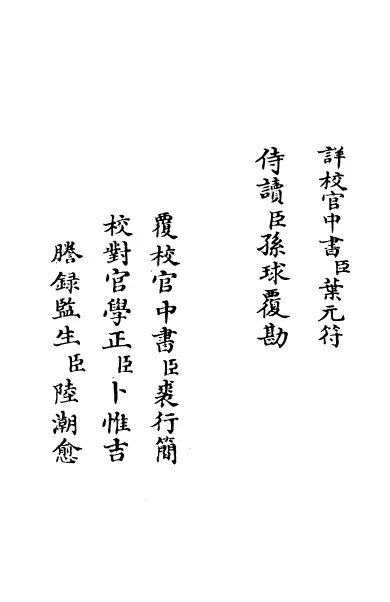 詳校官中書臣葉元符
侍讀臣孫球覆勘
覆校官中書臣裘行簡
校對官學正臣卜惟吉
謄録監生臣陸潮愈